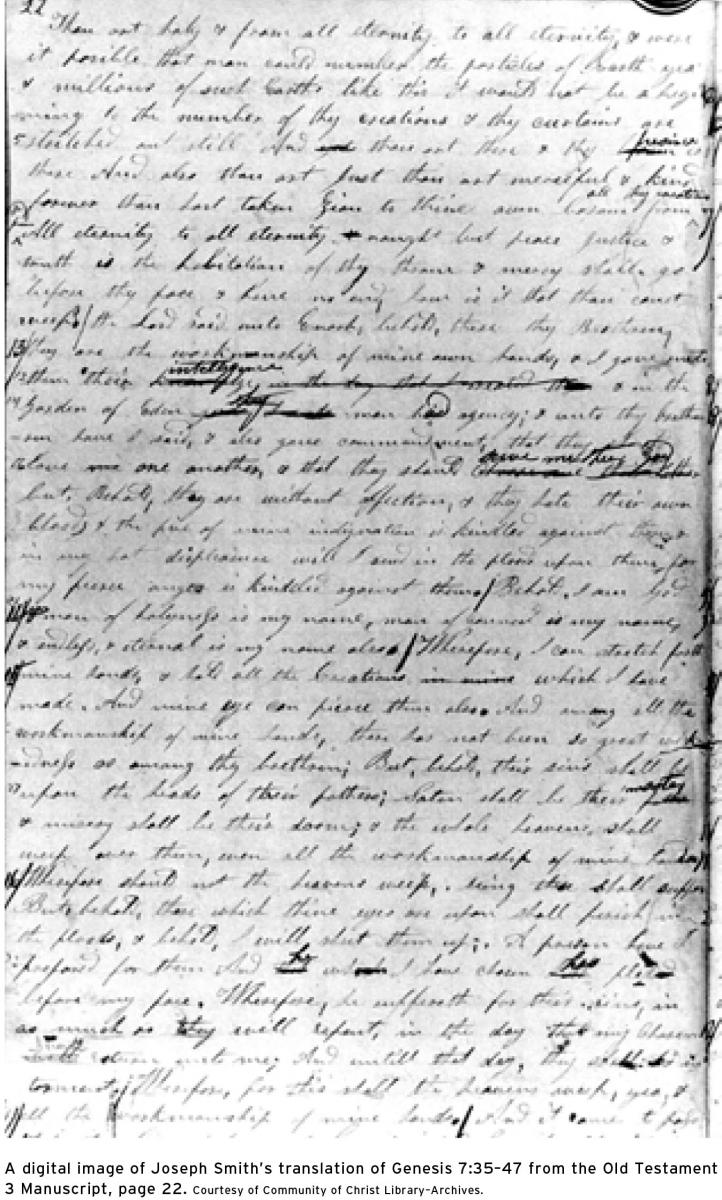 22
Thou art holy & from all eternity to all eternity, & were
it posible that man could number the particles of Earth yea
& millions of such Earths like this it would not be a begi
nning to the number of thy creations & thy curtains are
stretched out still And thou art there & thy
there And also thou art just thou art merceiful & kind
all thy creations
forever thou hast taken Zion to thine own bosom from
All eternity to all eternity & naught but peace justice &
truth is the habitation of thy throne & mercy shall go
before thy face & have no end, how is it that thou canst
weep/ the Lord said unto Enoch, behold, these thy Brethren,
they are the workmanship of mine own hands, & I gave unto
intelligence
them their in the day that I created & in the
Garden of Eden man his agency; & unto thy breth
ren have I said, & also gave commandment, that they
love one another, & that they should
but, Behold, they are without affection, & they hate their own
blood; & the fire of mine indignation is kindled against them &
in my hot displeasure will I send in the floods upon them, for
my fierce anger is kindled against them/ Behold, I am God
man of holyness is my name, man of council is my name,
& endless, & eternal is my name also/ Wherefore, I can stretch forth
mine hands, & hold all the Creations in mine which I have
made. And mine eye can pierce them also. And among all the
workmanship of mine hands, there has not been so great wick
edness as among thy brethren; But, behold, their sins shall be
upon the heads of their fathers; Satan shall be their
& misery shall be their doom; & the whole heavens, shall
weep over them, even all the workmanship of mine hands,
Wherefore should not the heavens weep, seing these shall suffer
But, behold, these which thine eyes are upon shall perish in
the floods, & behold, I will shut them up; A prison have I
prepared for them And I have chosen
before my face. Wherefore, he suffereth for their sins, in
as much as they will repent, in the day that my chosen
return unto me; And untill that day, they shall be in
torment; Wherefore, for this shall the heavens weep, yea, &
all the workmanship of mine hands/ And it came to pass
A digital image of Joseph Smith's translation of Genesis 7:35–47 from the Old Testament
3 Manuscript, page 22. Courtesy of Community of Christ Library–Archives.